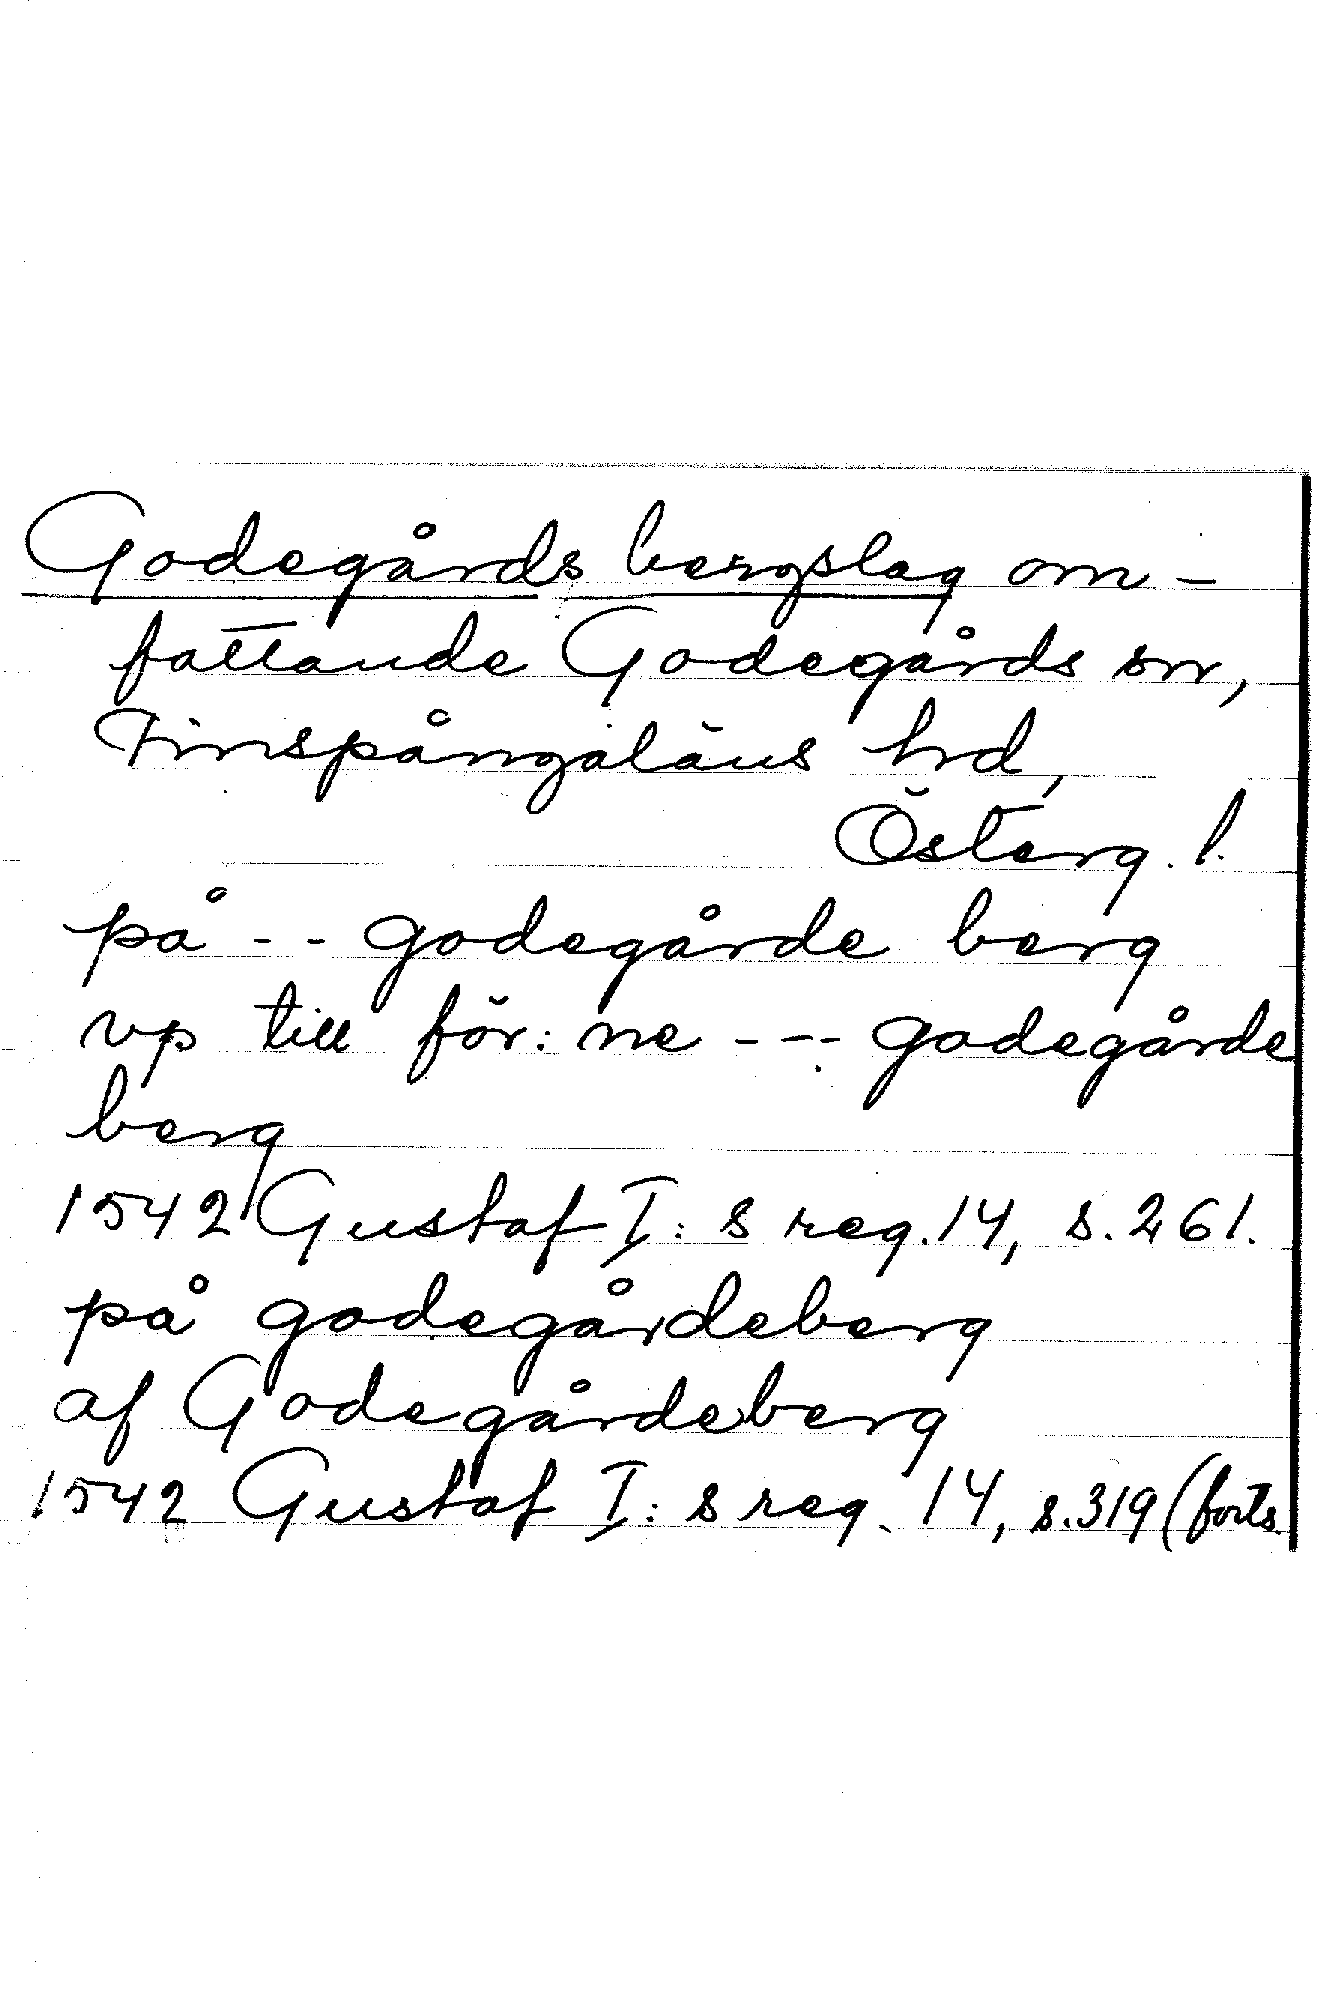 Godegårds bergslag om-
fattande Godegårds sn,
Finspångaläns hd,
Österg. l.
på -- godegårde berg
vp till för: ne --- godegårde
berg
1542 Gustaf I: s reg. 14, s. 261.
på godegårdeberg
af Godegårdeberg
1542 Gustaf I: s reg. 14, s. 319 (forts.